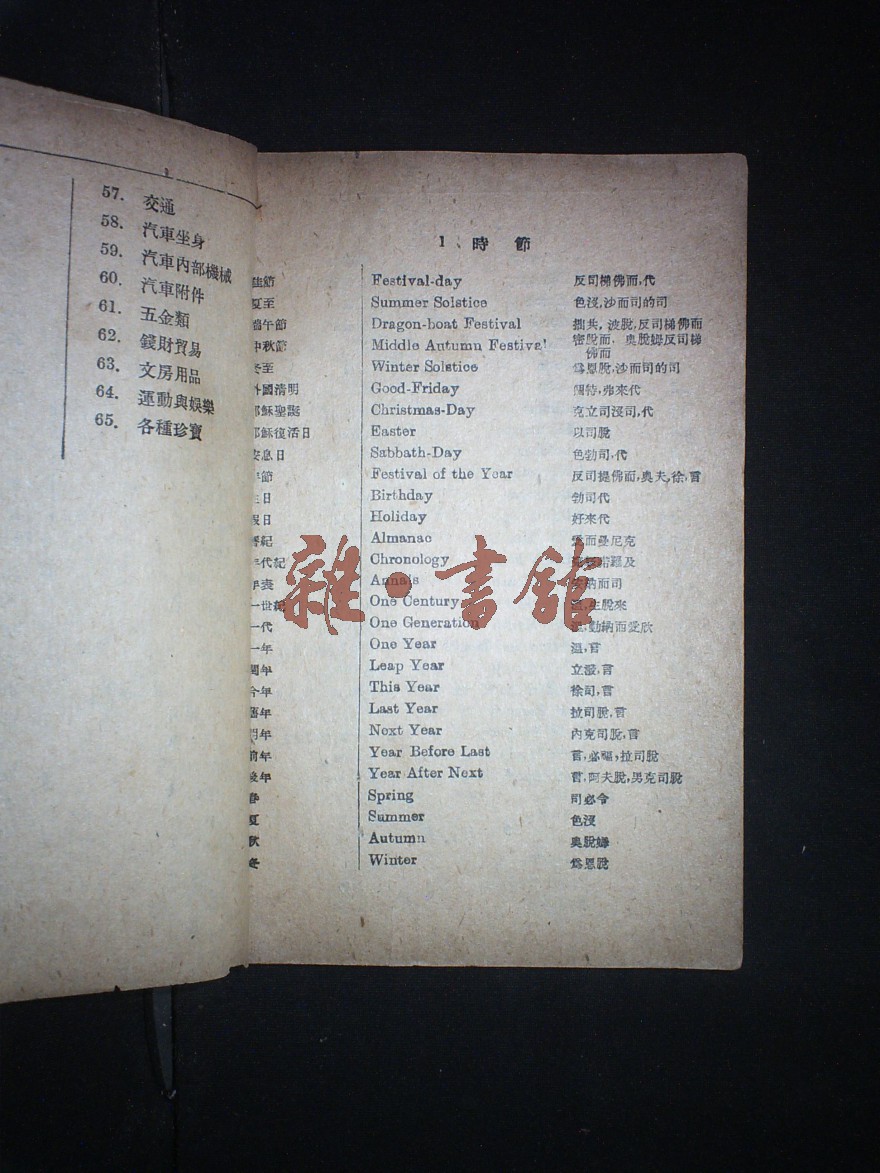 57. 交通
58. 汽車坐身
59. 汽車內部機械
60. 汽車附件
61. 五金類
62. 錢財貿易
63. 文房用品
64. 運動與娛樂
65. 各種珍寶
1、時節
節 Festival-day 反司梯佛而,代
夏至 Summer Solstice 色浸,沙而司的司
端午節 Dragon-boat Festival 拙共,波脫,反司梯佛而
中秋節 Middle Autumn Festival 密脫而,奧脫姆反司梯
佛而
冬至 Winter Solstice 爲恩脫,沙而司的司
外國清明 Good-Friday 個特,弗來代
耶穌聖誕 Christmas-Day 克立司浸司,代
耶穌復活日 Easter 以司脫
安息日 Sabbath-Day 色勃司,代
年節 Festival of the Year 反司提佛而,奧夫,徐,言
生日 Birthday 勃司代
假日 Holiday 好來代
曆紀 Almanac 而曼尼克
年代紀 Chronology 諾羅及
年表 Annals 納而司
一世紀 One Century 溫,生脫來
一代 One Generation 溫,勤納而愛欣
一年 One Year 溫,言
閏年 Leap Year 立潑,言
今年 This Year 徐司,言
舊年 Last Year 拉司脫,言
明年 Next Year 內克司脫,言
前年 Year Before Last 言,必福,拉司脫
後年 Year After Next 言,阿夫脫,男克司脫
春 Spring 司必令
夏 Summer 色浸
秋 Autumn 奧脫姆
冬 Winter 爲恩脫
雜·書館